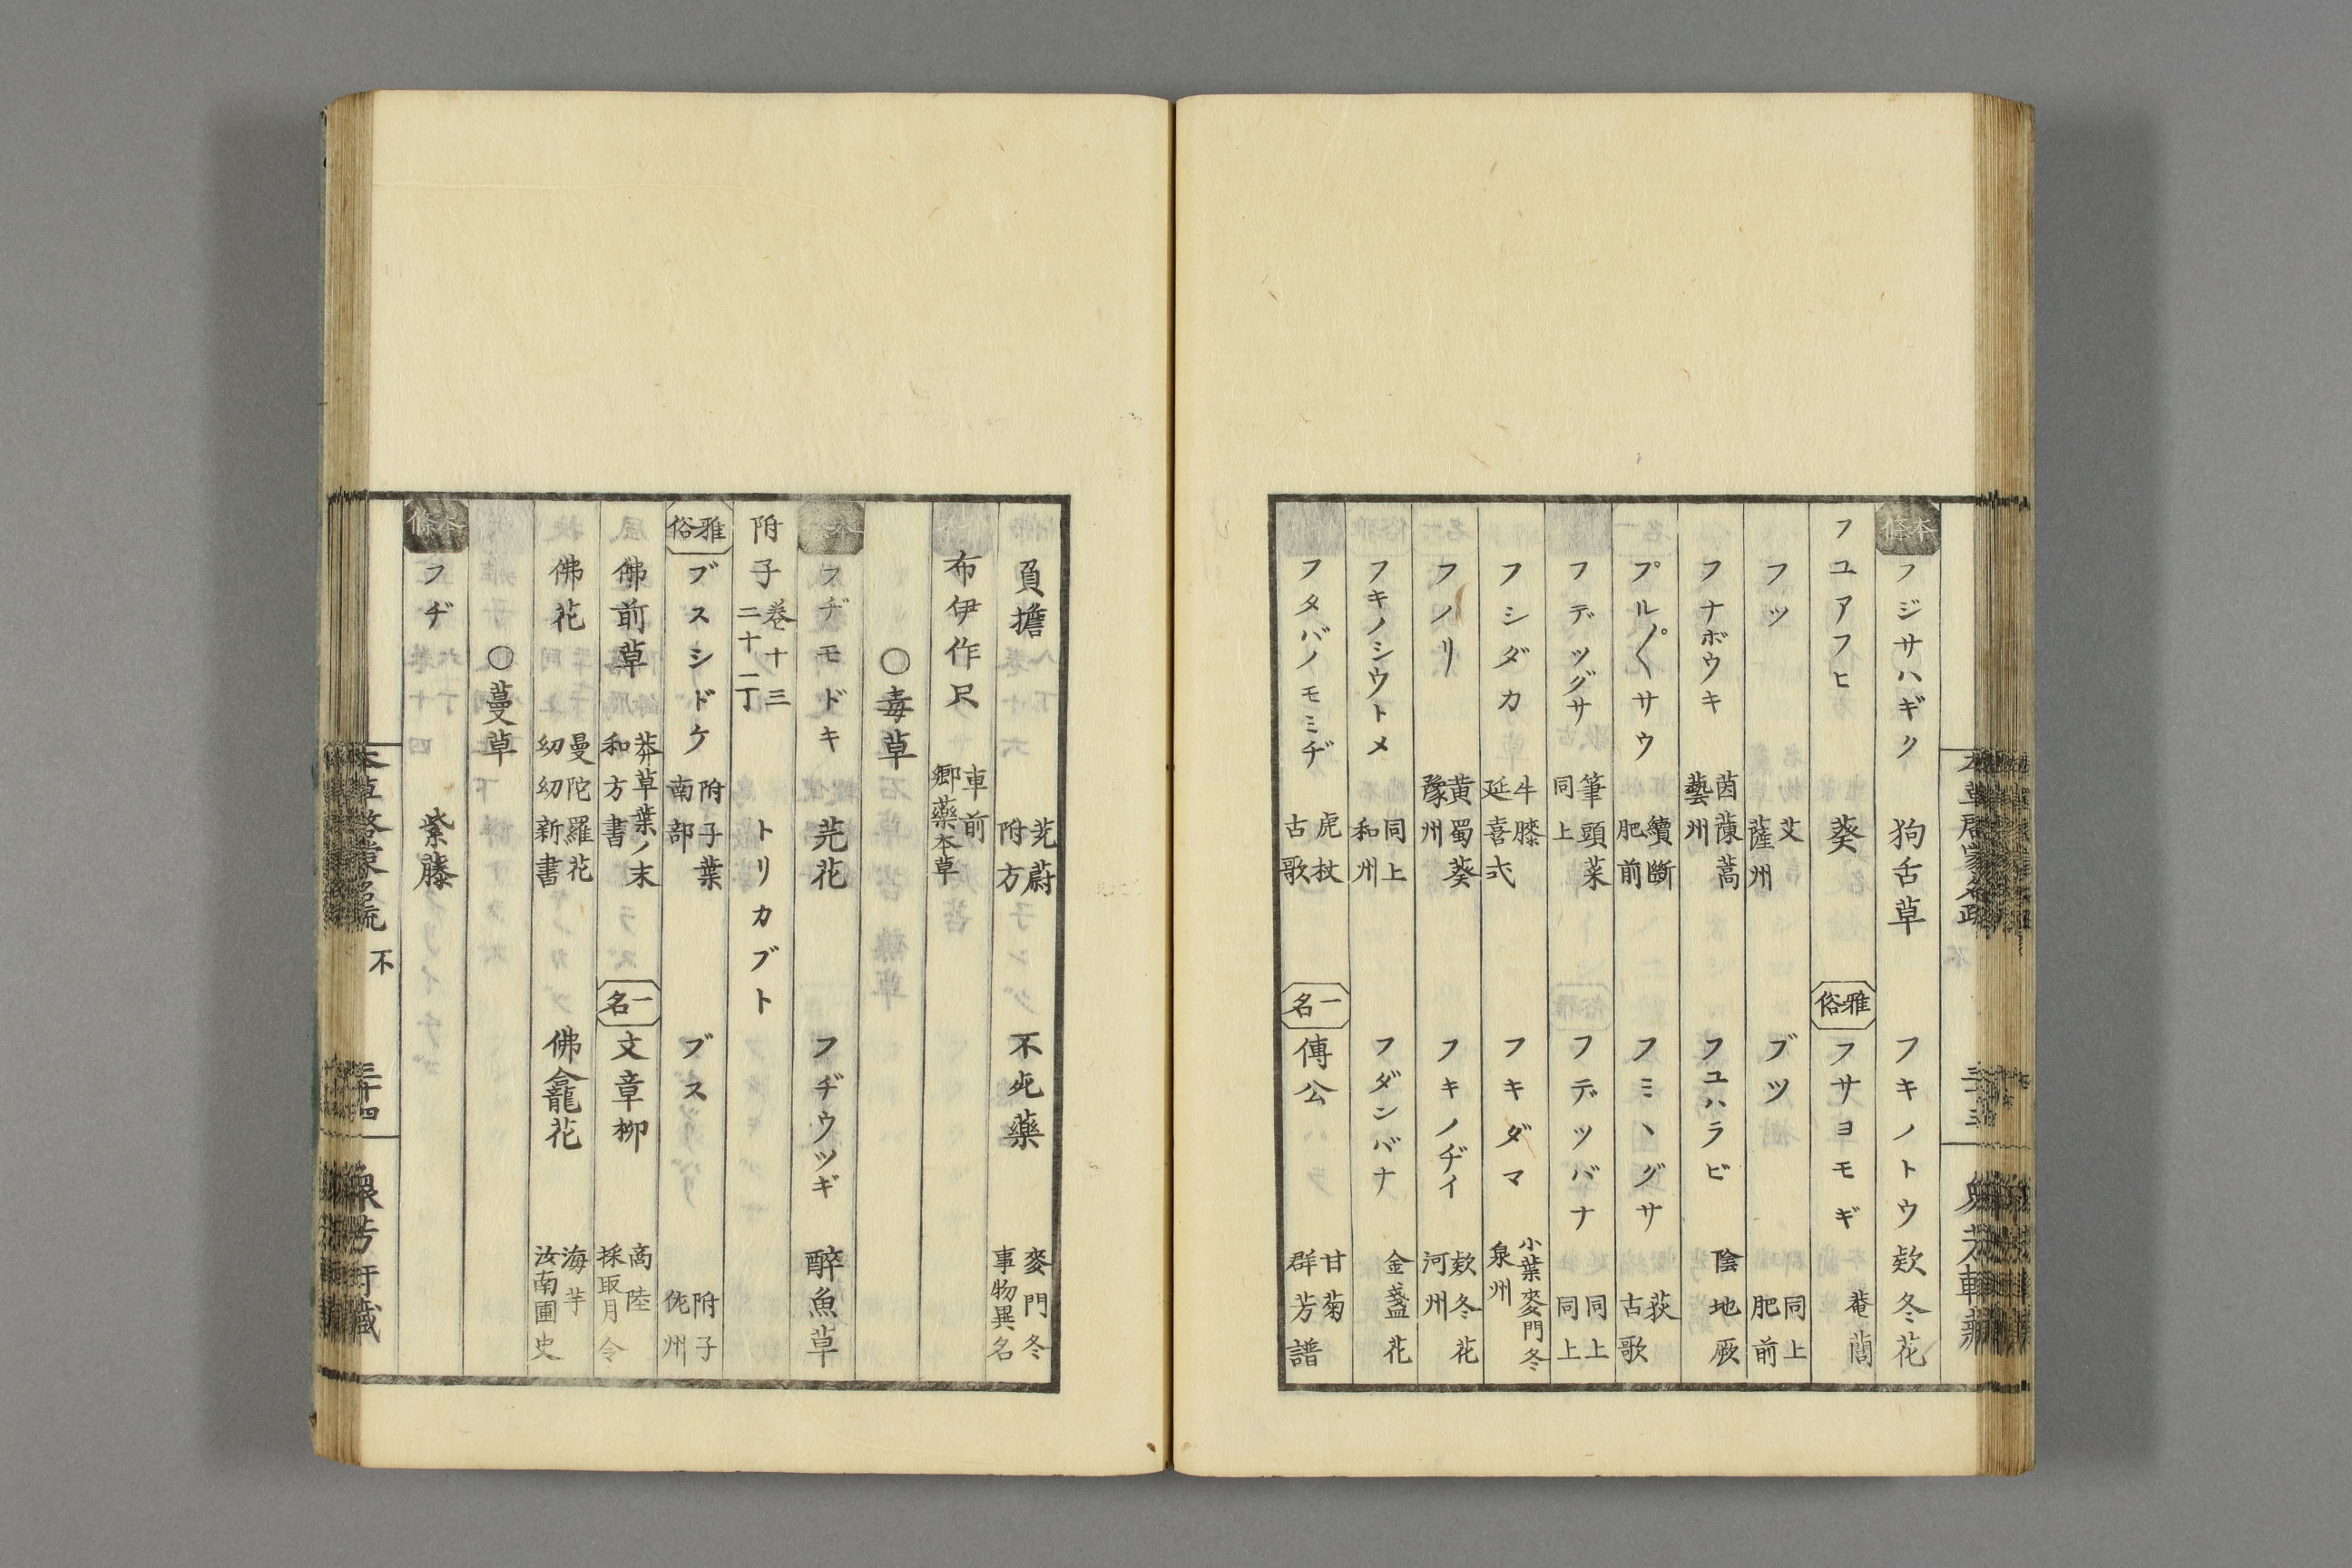 本條 フジサハギク 狗舌草 フキノトウ 欵冬花
フユアフヒ 葵 雅俗 フサヨモギ 菴䕡
フツ 艾 薩州 ブツ 同上 肥前
フナボウキ 茵蔯蒿 藝州 フユハラビ 陰地厥
プル〱サウ 續斷 肥前 フミヽグサ 荻 古歌
フデツグサ 筆頭菜 同上 フデツバナ 同上 同上
フシダカ 牛膝 延喜式 フキダマ 小葉麥門冬 泉州
フノリ 黄蜀葵 豫州 フキノヂイ 欵冬花 河州
フキノシウトメ 同上 和州 フダンバナ 金盞花
フタバノモミヂ 虎杖 古歌 一名 傳公 甘菊 群芳譜
負擔 茺蔚 附方 不死藥 麥門冬 事物異名
布伊作尺 車前 鄉藥本草
○毒草
本條 フヂモドキ 芫花 フヂウツギ 醉魚草
附子 卷十三 二十二丁 トリカブト
雅俗 ブスシドケ 附子葉 南部 ブス 附子 佐州
佛前草 莽草葉ノ末 和方書 一名 文章柳 商陸 採取月令
佛花 曼陀羅花 幼幼新書 佛龕花 海芋 汝南圃史
○蔓草
本條 フヂ 紫藤
本草啓蒙名疏 不 三十四 衆芳軒藏